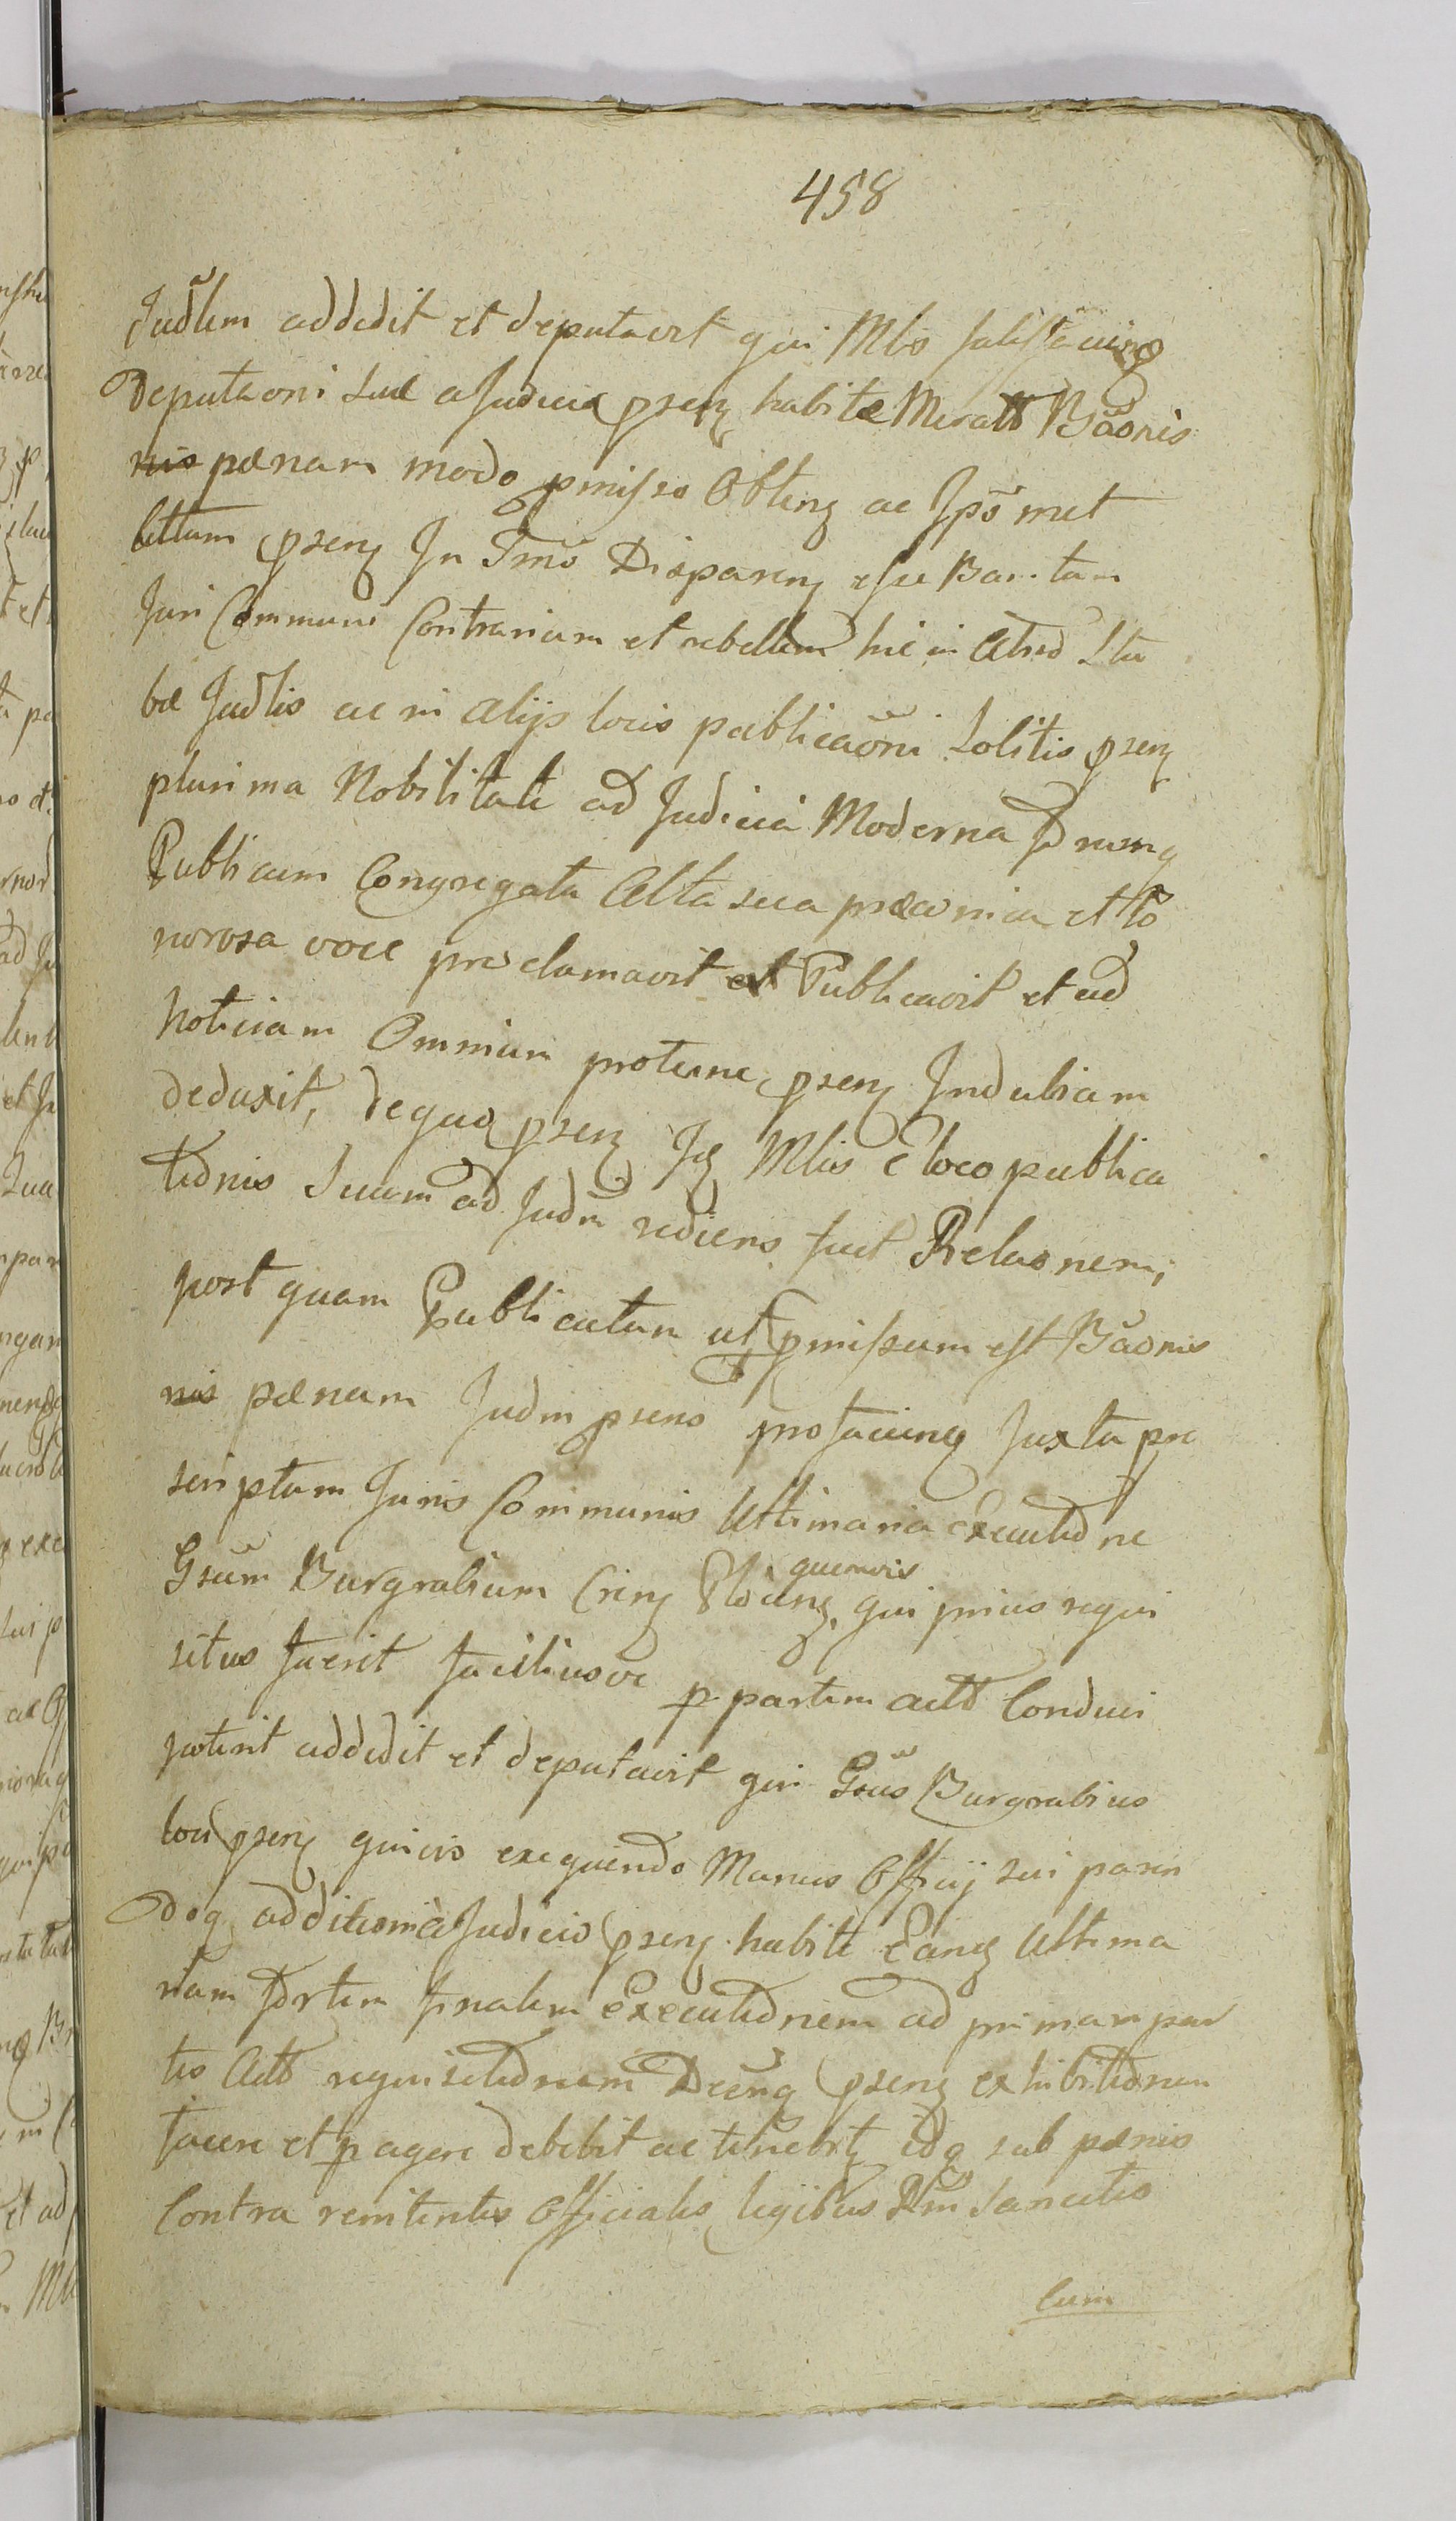 458
Judlem addidit et deputavit qui Mlis satisfaciens
Deputaoni suæ a Judicio psenz habitæ Meratt Baonis
nis pænam modo pmisso Obtenz ac Ipsomet
Cittum psenz In Tmo Disparenz esse Banitum
Juri Communi Contrarium et rebellem hic in Atrio Stu
bæ Judlis ac in alijs locis publicaōni Solitis psenz
plurima Nobilitate ad Judicia Moderna
Publicum Congregata Alta sua præconica et so
norosa voce proclamavit et Publicavit et ad
Noticiam Omnium protunc psenz Indubiam
deduxit, dequo psenz Jd Mlis e loco publica
tionis Suam ad Judm rediens fecit Relaonem,
post quam Publicatam ut pmissum est Baonis
nis pænam Judm psens profaciend Juxta præ
scriptum Juris Communis Ultimaria Executione
Gsum Burgrabium quemvis qui prius requi
situs fuerit faciliusve p partem actt Conduci
poterit addidit et deputavit qui Gsus Burgrabius
loci psenz quivis exequendo Munus Officij sui paren
doq additioni a Judicio psenz habitæ Eand Ultima
riam fortem finalem Executionem ad primam par
tis Actt requisitionem Decrtq psenz exhibitionem
facere et pagere debebit ac tenebrtz idq sub pænis
Contra renitentes Officiales legibus Rni Sancitis
Cum